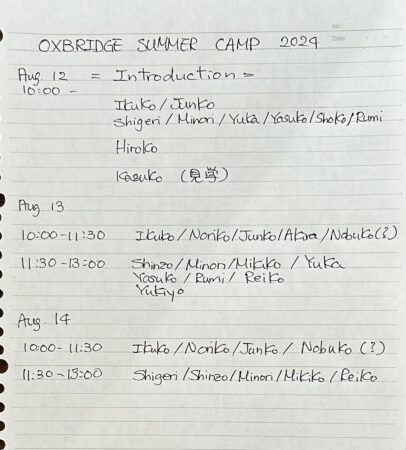 No.
Date
OXBRIDGE SUMMER CAMP 2024
Aug. 12 = Introduction =
10:00 -
Ikuko / Junko
Shigeri / Minori / Yuka / Yasuko / Shoko / Rumi
Hiroko
Kazuko (見学)
Aug. 13
10:00-11:30 Ikuko / Noriko / Junko / Akira / Nobuko (?)
11:30-13:00 Shinzo / Minori / Mikiko / Yuka
Yasuko / Rumi / Reiko
Yukiyo
Aug. 14
10:00-11:30 Ikuko / Noriko / Junko / Nobuko (?)
11:30-13:00 Shigeri / Shinzo / Minori / Mikiko / Reiko